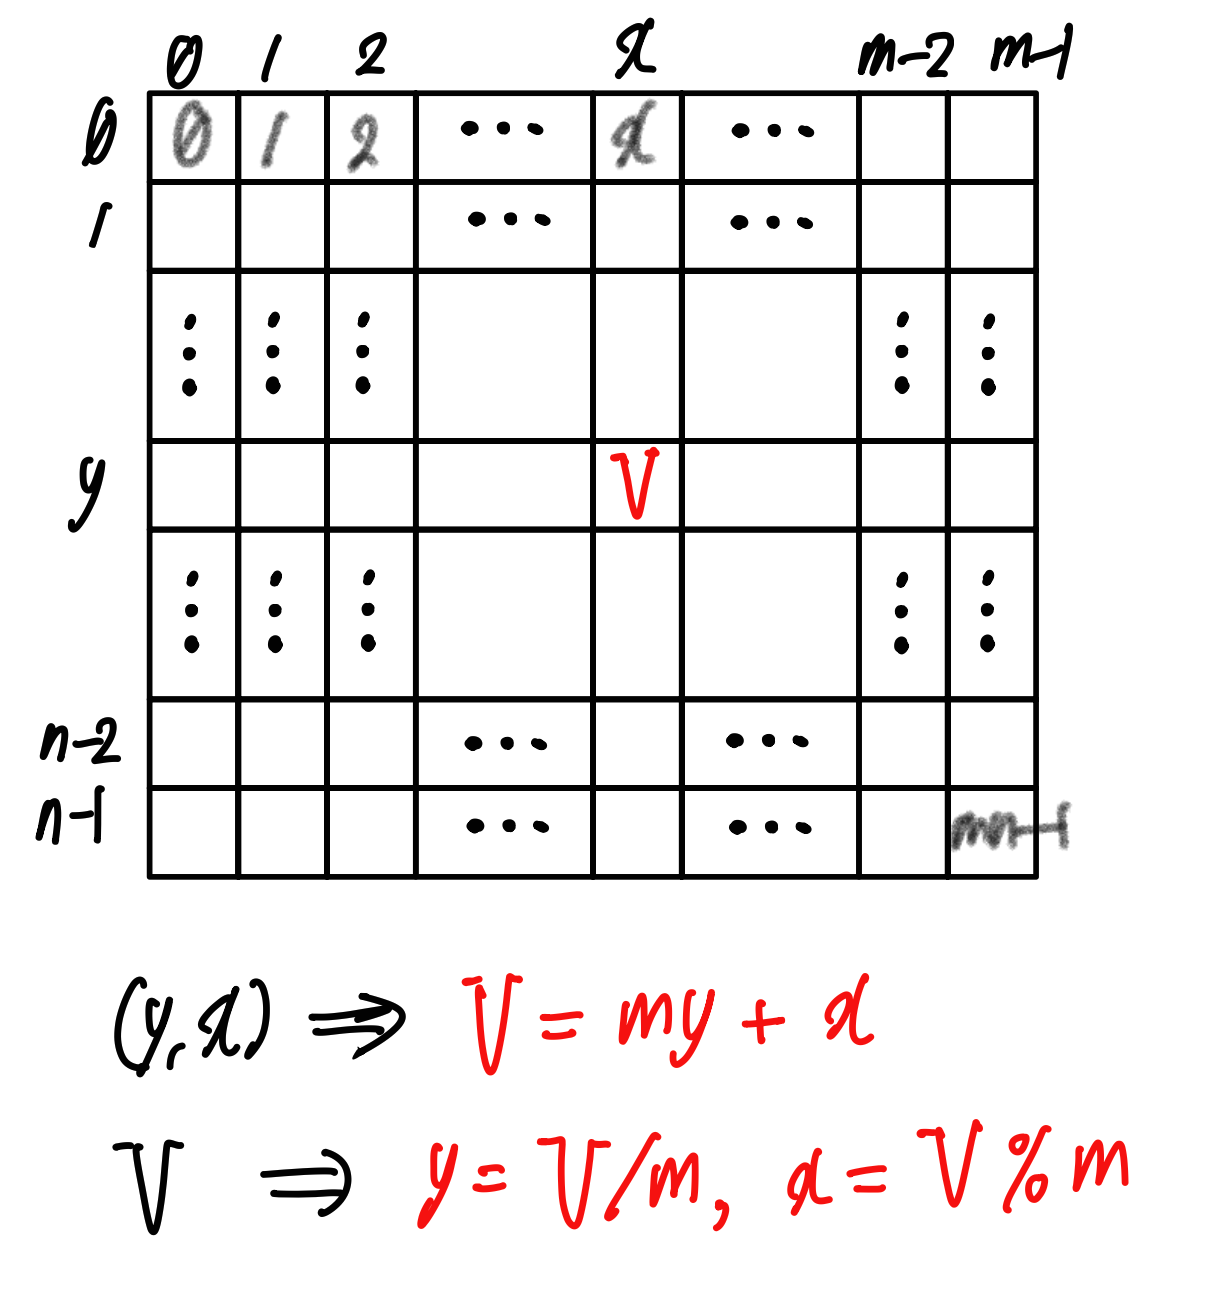 0 1 2 x m-2 m-1
0 0 1 2 ... x ...
1 ... ...
⋮ ⋮ ⋮ ⋮ ⋮
y V
⋮ ⋮ ⋮ ⋮ ⋮
n-2 ... ...
n-1 ... ... mn-1
(y, x) ⇒ V = my + x
V ⇒ y = V/m, x = V % m